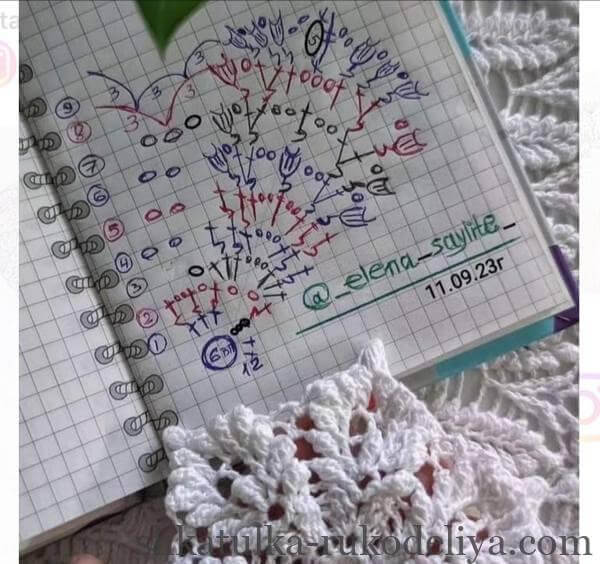 5
3
3
3
3
9
8
7
6
5
4
3
2
1
6вп
12
@_elena_saylite_
11.09.23г
katulka-rukodeliya.com